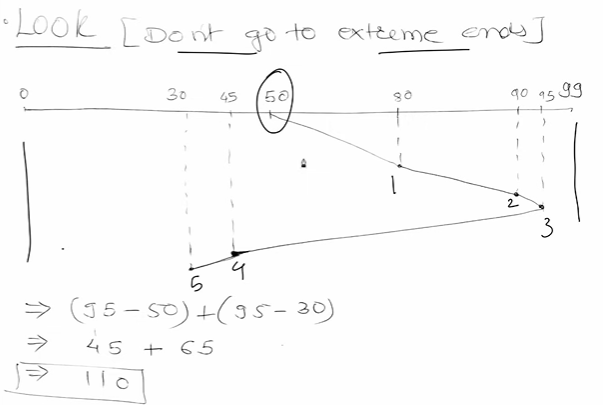 Look [Don't go to extreme ends]
0 30 45 50 80 90 95 99
1
2
3
4
5
⇒ (95-50)+(95-30)
⇒ 45 + 65
⇒ 110